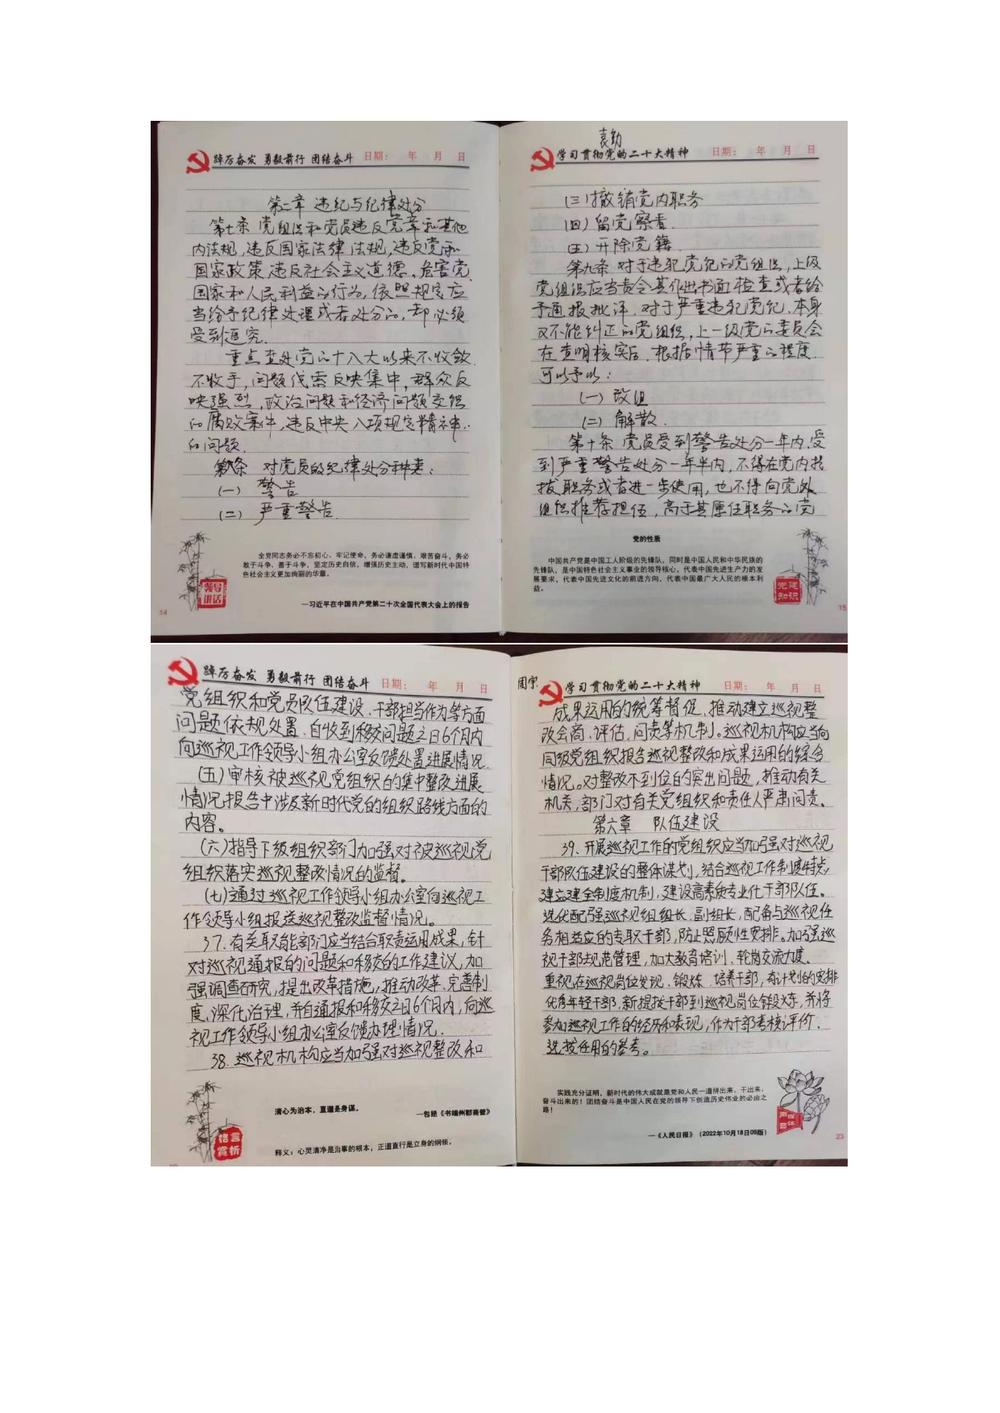 踔厉奋发 勇毅前行 团结奋斗 日期： 年 月 日
第二章 违纪与纪律处分
第七条 党组织和党员违反党章和其他
内法规，违反国家法律法规，违反党和
国家政策 违反社会主义道德，危害党
国家和人民利益的行为，依照规定应
当给予纪律处理或者处分的，都必须
受到追究。
重点查处党的十八大以来不收敛
不收手，问题线索反映集中，群众反
映强烈，政治问题和经济问题交织
的腐败案件，违反中央八项规定精神
的问题
第八条 对党员的纪律处分种类：
（一）警告
（二）严重警告
全党同志务必不忘初心、牢记使命，务必谦虚谨慎、艰苦奋斗，务必
敢于斗争、善于斗争，坚定历史自信，增强历史主动，谱写新时代中国特
色社会主义更加绚丽的华章。
领导
讲话
—习近平在中国共产党第二十次全国代表大会上的报告
14
袁勤
学习贯彻党的二十大精神 日期： 年 月 日
（三）撤销党内职务
（四）留党察看
（五）开除党籍
第九条 对于违犯党纪的党组织，上级
党组织应当责令其作出书面检查或者给
予通报批评。对于严重违犯党纪、本身
又不能纠正的党组织，上一级党的委员会
在查明核实后，根据情节严重的程度
可以予以：
（一）改组
（二）解散
第十条 党员受到警告处分一年内、受
到严重警告处分一年半内，不得在党内提
拔职务或者进一步使用，也不得向党外
组织推荐担任，高于其原任职务的党
党的性质
中国共产党是中国工人阶级的先锋队，同时是中国人民和中华民族的
先锋队，是中国特色社会主义事业的领导核心，代表中国先进生产力的发
展要求，代表中国先进文化的前进方向，代表中国最广大人民的根本利
益。
党建
知识
15
踔厉奋发 勇毅前行 团结奋斗 日期： 年 月 日
党组织和党员队伍建设、干部担当作为等方面
问题依规处置，自收到移交问题之日6个月内
向巡视工作领导小组办公室反馈处置进展情况
（五）审核被巡视党组织的集中整改进展
情况报告中涉及新时代党的组织路线方面的
内容。
（六）指导下级组织部门加强对被巡视党
组织落实巡视整改情况的监督。
（七）通过巡视工作领导小组办公室向巡视工
作领导小组报送巡视整改监督情况。
37.有关职能部门应当结合职责运用成果，针
对巡视通报的问题和移交的工作建议，加
强调查研究，提出改革措施，推动改革、完善制
度、深化治理，并自通报和移交之日6个月内，向巡
视工作领导小组办公室反馈办理情况。
38.巡视机构应当加强对巡视整改和
清心为治本，直道是身谋。
—包拯《书端州郡斋壁》
格言
赏析
释义：心灵清净是治事的根本，正道直行是立身的纲领。
周宗
学习贯彻党的二十大精神 日期： 年 月 日
成果运用的统筹督促，推动建立巡视整
改会商、评估、问责等机制。巡视机构应当向
同级党组织报告巡视整改和成果运用的综合
情况。对整改不到位的突出问题，推动有关
机关，部门对有关党组织和责任人严肃问责。
第六章 队伍建设
39.开展巡视工作的党组织应当加强对巡视
干部队伍建设的整体谋划，结合巡视工作制度特点
建立健全制度机制，建设高素质专业化干部队伍。
选优配强巡视组组长、副组长，配备与巡视任
务相适应的专职干部，防止照顾性安排。加强巡
视干部规范管理，加大教育培训、轮岗交流力度。
重视在巡视岗位发现、锻炼、培养干部，有计划的安排
优秀年轻干部、新提拔干部到巡视岗位锻炼，并将
参加巡视工作的经历和表现，作为干部考核评价、
选拔任用的参考。
实践充分证明，新时代的伟大成就是党和人民一道拼出来、干出来、
奋斗出来的！团结奋斗是中国人民在党的领导下创造历史伟业的必由之
路！
—《人民日报》（2022年10月18日09版）
23